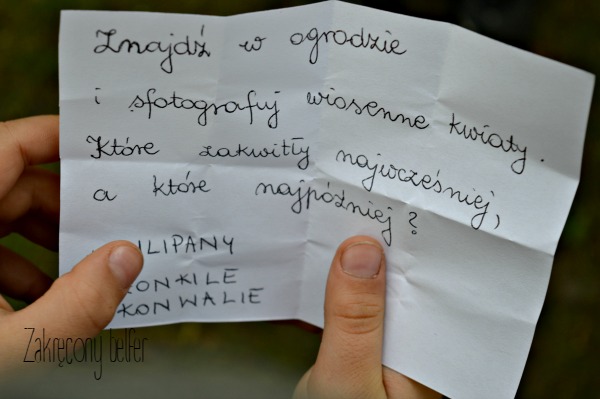 Znajdź w ogrodzie
i sfotografuj wiosenne kwiaty.
Które zakwitły najwcześniej,
a które najpóźniej?
ILIPANY
ONKILE
KONWALIE
Zakręcony belfer